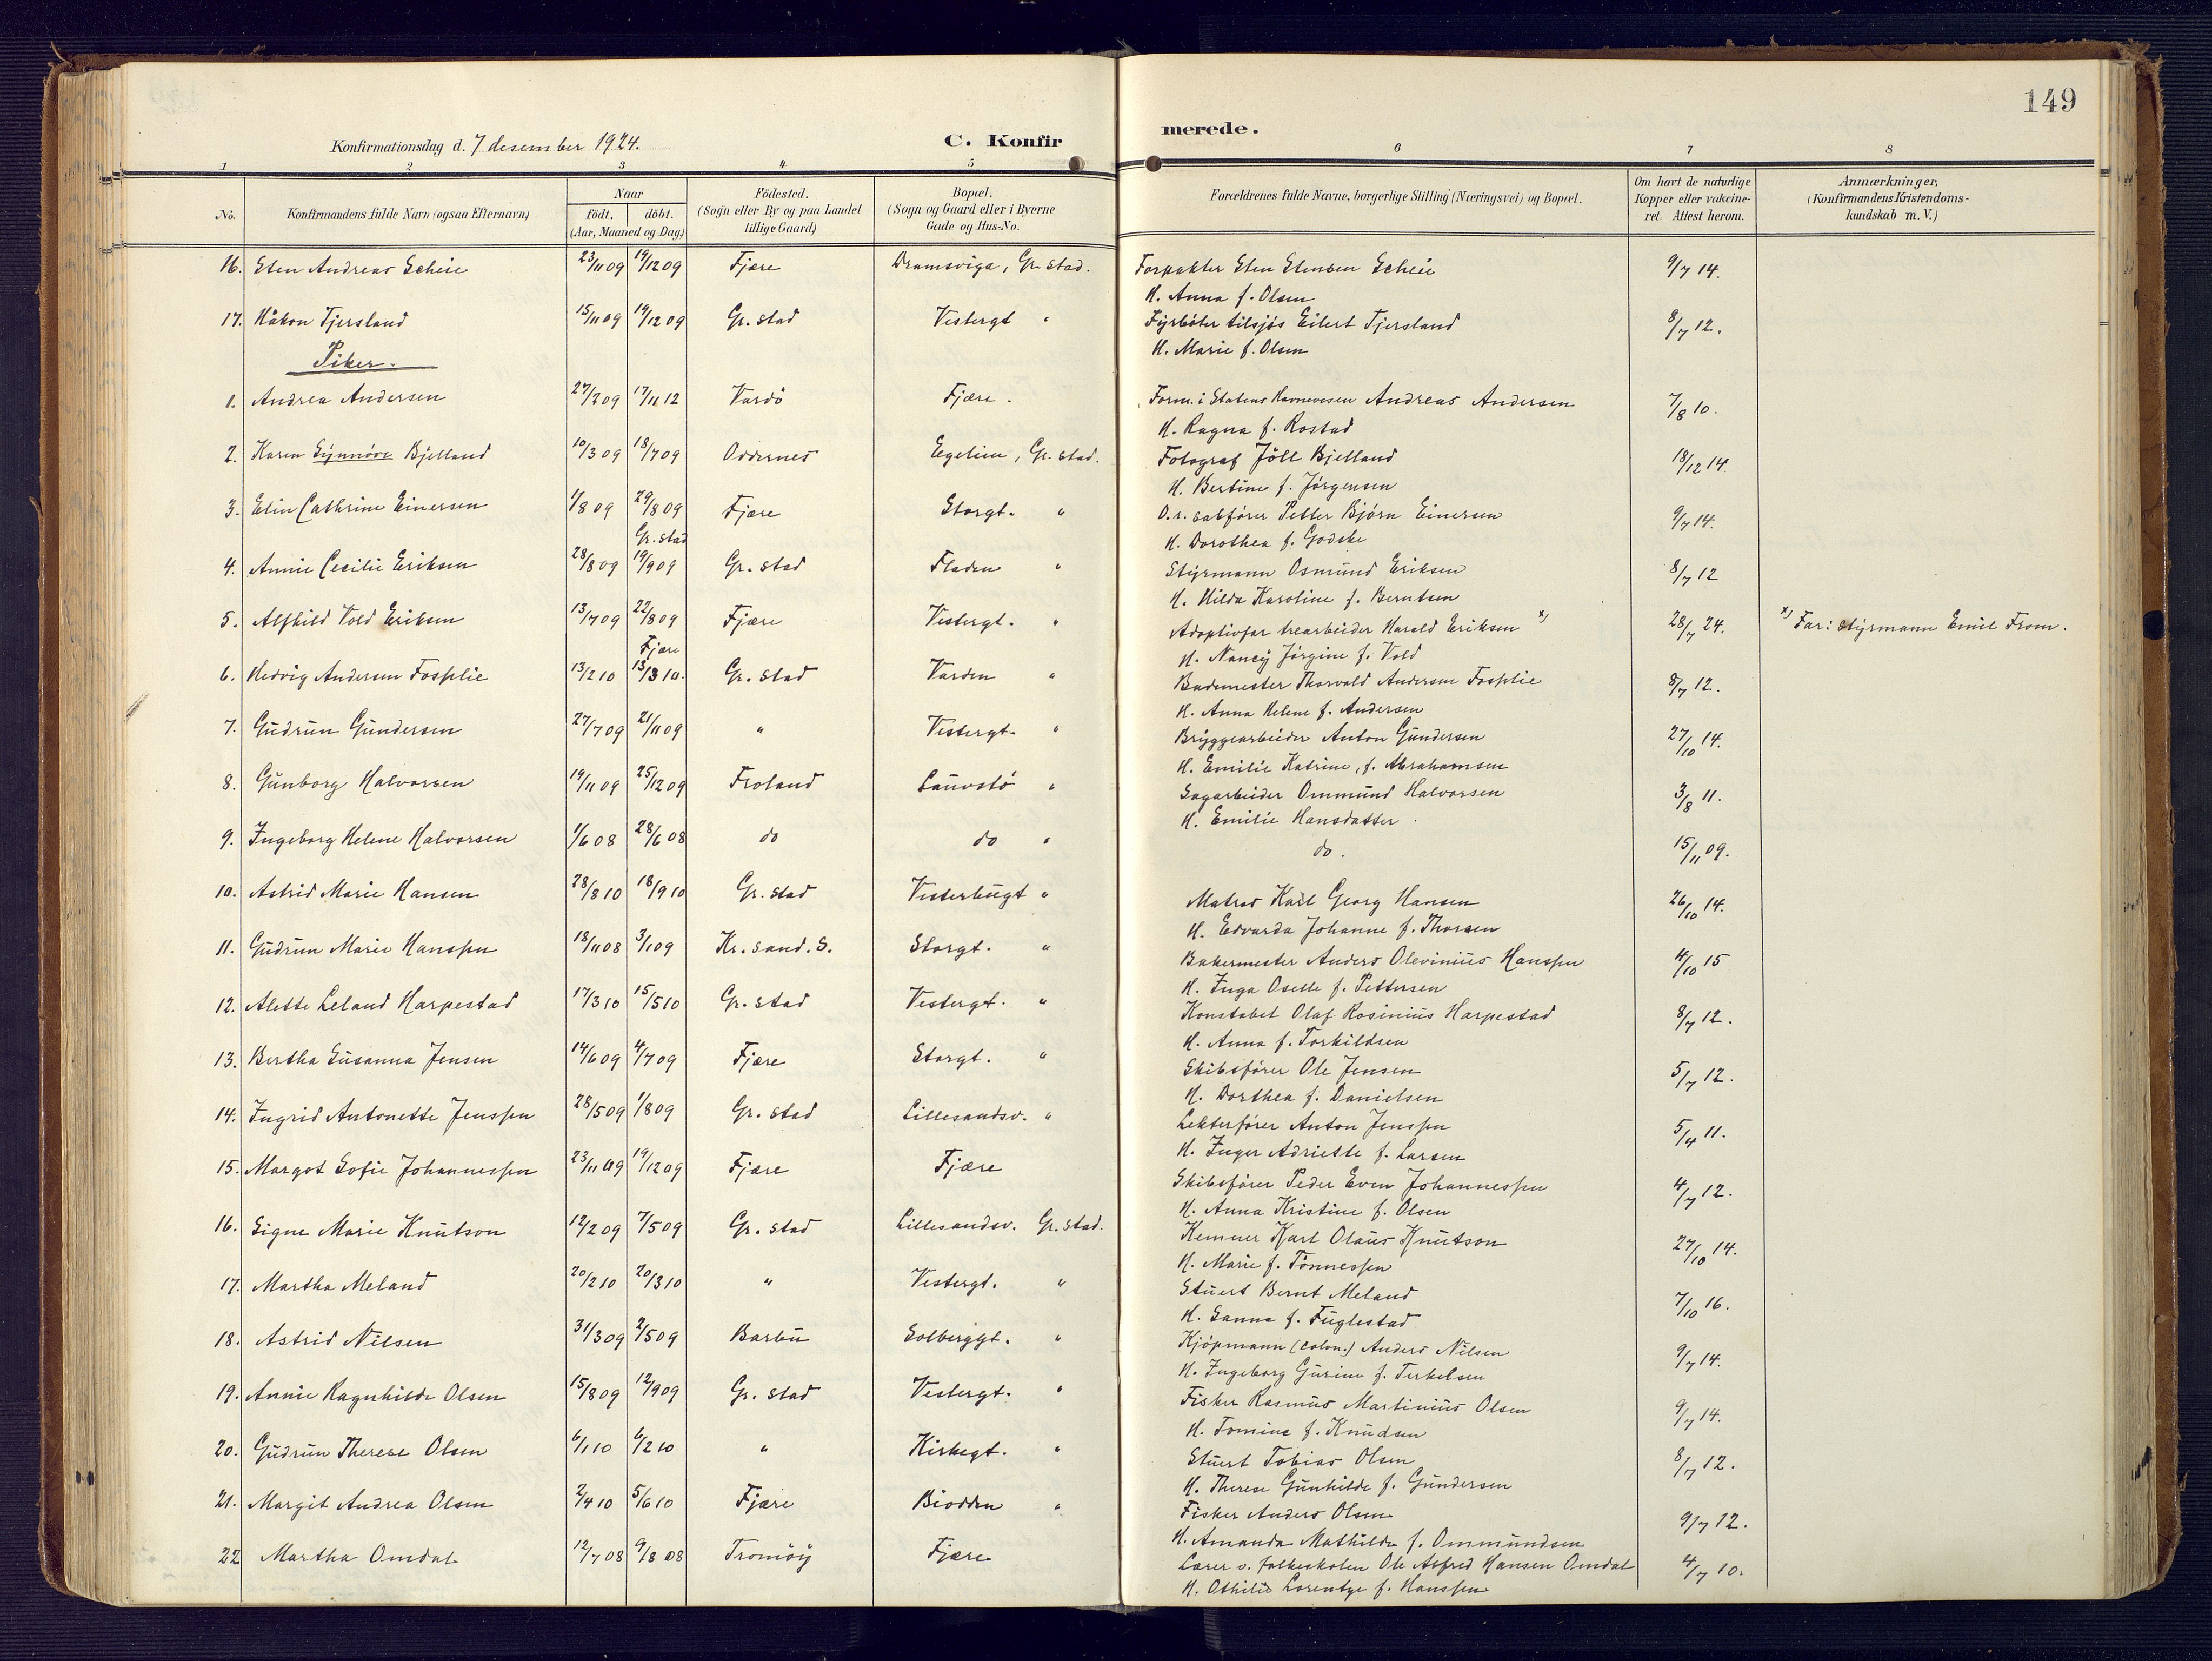 149
Konfirmationsdag d. 7 desember 1924.
C. Konfir
merede.
1 2 3 4 5 6 7 8
No.
Konfirmandens fulde Navn (ogsaa Efternavn)
Naar
födt. döbt.
(Aar, Maaned og Dag)
Födested.
(Sogn eller By og paa Landet
tillige Gaard)
Bopæl.
(Sogn og Gaard eller i Byerne
Gade og Hus-No.
Forældrenes fulde Navne, borgerlige Stilling (Næringsvei) og Bopæl.
Om havt de naturlige
Kopper eller vakcine-
ret. Attest herom.
Anmærkninger,
(Konfirmandens Kristendoms-
kundskab m. V.)
16. Sten Andreas Scheie 23/11 09 19/12 09 Fjære Dramsviga, Gr. stad. Forpakter Sten Stensen Scheie 9/7 14.
H. Anna f. Olsen
17. Håkon Tjersland 15/11 09 19/12 09 Gr. stad Vestergt " Fyrböter tilsjös Eilert Tjersland 8/7 12.
H. Marie f. Olsen
Piker.
1. Andrea Andersen 27/2 09 17/11 12 Vardö Fjære. Form. i Statens Havnevesen Andreas Andersen 7/8 10.
H. Ragna f. Rostad
2. Karen Synnöve Bjelland 10/3 09 18/7 09 Oddernes Egelien, Gr. stad. Fotograf Jöll Bjelland 18/12 14.
H. Bertine f. Jörgensen
3. Elin Cathrine Einersen 1/8 09 29/8 09 Fjære Storgt. " O.r. sakförer Petter Björn Einersen 9/7 14.
Gr. stad H. Dorothea f. Godske
4. Annie Cecilie Eriksen 28/8 09 19/9 09 Gr. stad Fladen " Styrmann Osmund Eriksen 8/7 12
H. Hilda Karoline f. Berntsen
5. Alfhild Vold Eriksen 13/7 09 22/8 09 Fjære Vestergt. " Adoptivfar trearbeider Harald Eriksen x) 28/7 24. x) Far: styrmann Emil From.
Fjære H. Nancy Jörgine f. Vold
6. Hedvig Andersen Fosslie 13/2 10 13/3 10. Gr. stad Varden " Bademester Thorvald Andersen Fosslie 8/7 12.
H. Anna Helene f. Andersen
7. Gudrun Gundersen 27/7 09 21/11 09 " Vestergt. " Bryggearbeider Anton Gundersen 27/10 14.
H. Emilie Katrine, f. Abrahamsen
8. Gunborg Halvorsen 19/11 09 25/12 09 Froland Lauvstö " Sagarbeider Ommund Halvorsen 3/8 11.
H. Emilie Hansdatter.
9. Ingeborg Helene Halvorsen 1/6 08 28/6 08 do do " do. 15/11 09.
10. Astrid Marie Hansen 28/8 10 18/9 10 Gr. stad Vesterbugt " Matros Karl Georg Hansen 26/10 14.
H. Edvarda Johanne f. Thorsen
11. Gudrun Marie Hanssen 18/11 08 3/1 09 Kr. sand. S. Storgt. " Bakermester Anders Olevinius Hanssen 4/10 15
H. Inga Oselle f. Pettersen
12. Alette Leland Harpestad 17/3 10 15/5 10 Gr. stad Vestergt. " Konstabel Olaf Rosinius Harpestad 8/7 12.
H. Anna f. Torkildsen
13. Bertha Susanna Jensen 14/6 09 4/7 09 Fjære Storgt. " Skibsförer Ole Jensen 5/7 12.
H. Dorthea f. Danielsen
14. Ingrid Antonette Jenssen 28/5 09 1/8 09 Gr. stad Lillesandsv. " Lekterförer Anton Jenssen 5/4 11.
H. Inger Adriette f. Larsen
15. Margot Sofie Johannessen 23/11 09 19/12 09 Fjære Fjære Skibsförer Peder Even Johannessen 4/7 12.
H. Anna Kristine f. Olsen
16. Signe Marie Knutson 12/2 09 7/5 09 Gr. stad Lillesandsv. Gr. stad. Kemner Karl Olaus Knutson 27/10 14.
H. Marie f. Tönnessen
17. Martha Meland 20/2 10 20/3 10 " Vestergt. " Stuert Bernt Meland 7/10 16.
H. Sanna f. Fuglestad
18. Astrid Nilsen 31/3 09 2/5 09 Barbu Solberggt. " Kjöpmann (colon.) Anders Nilsen 9/7 14.
H. Ingeborg Gurine f. Terkelsen
19. Annie Ragnhilde Olsen 15/8 09 12/9 09 Gr. stad Vestergt. " Fisker Rasmus Martinius Olsen 9/7 14.
H. Tomine f. Knudsen
20. Gudrun Therese Olsen 6/1 10 6/2 10 " Kirkegt. " Stuert Tobias Olsen 8/7 12.
H. Therese Gunhilde f. Gundersen
21. Margit Andrea Olsen 2/4 10 5/6 10 Fjære Biodden " Fisker Anders Olsen 9/7 12.
H. Amanda Mathilde f. Ommundsen
22 Martha Omdal 12/7 08 9/8 08 Tromöy Fjære Lærer v. folkeskolen Ole Alfred Hansen Omdal 4/7 10.
H. Othilie Lorentze f. Hanssen